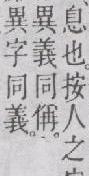 息也。按人之
異義同偁。
異字同義。